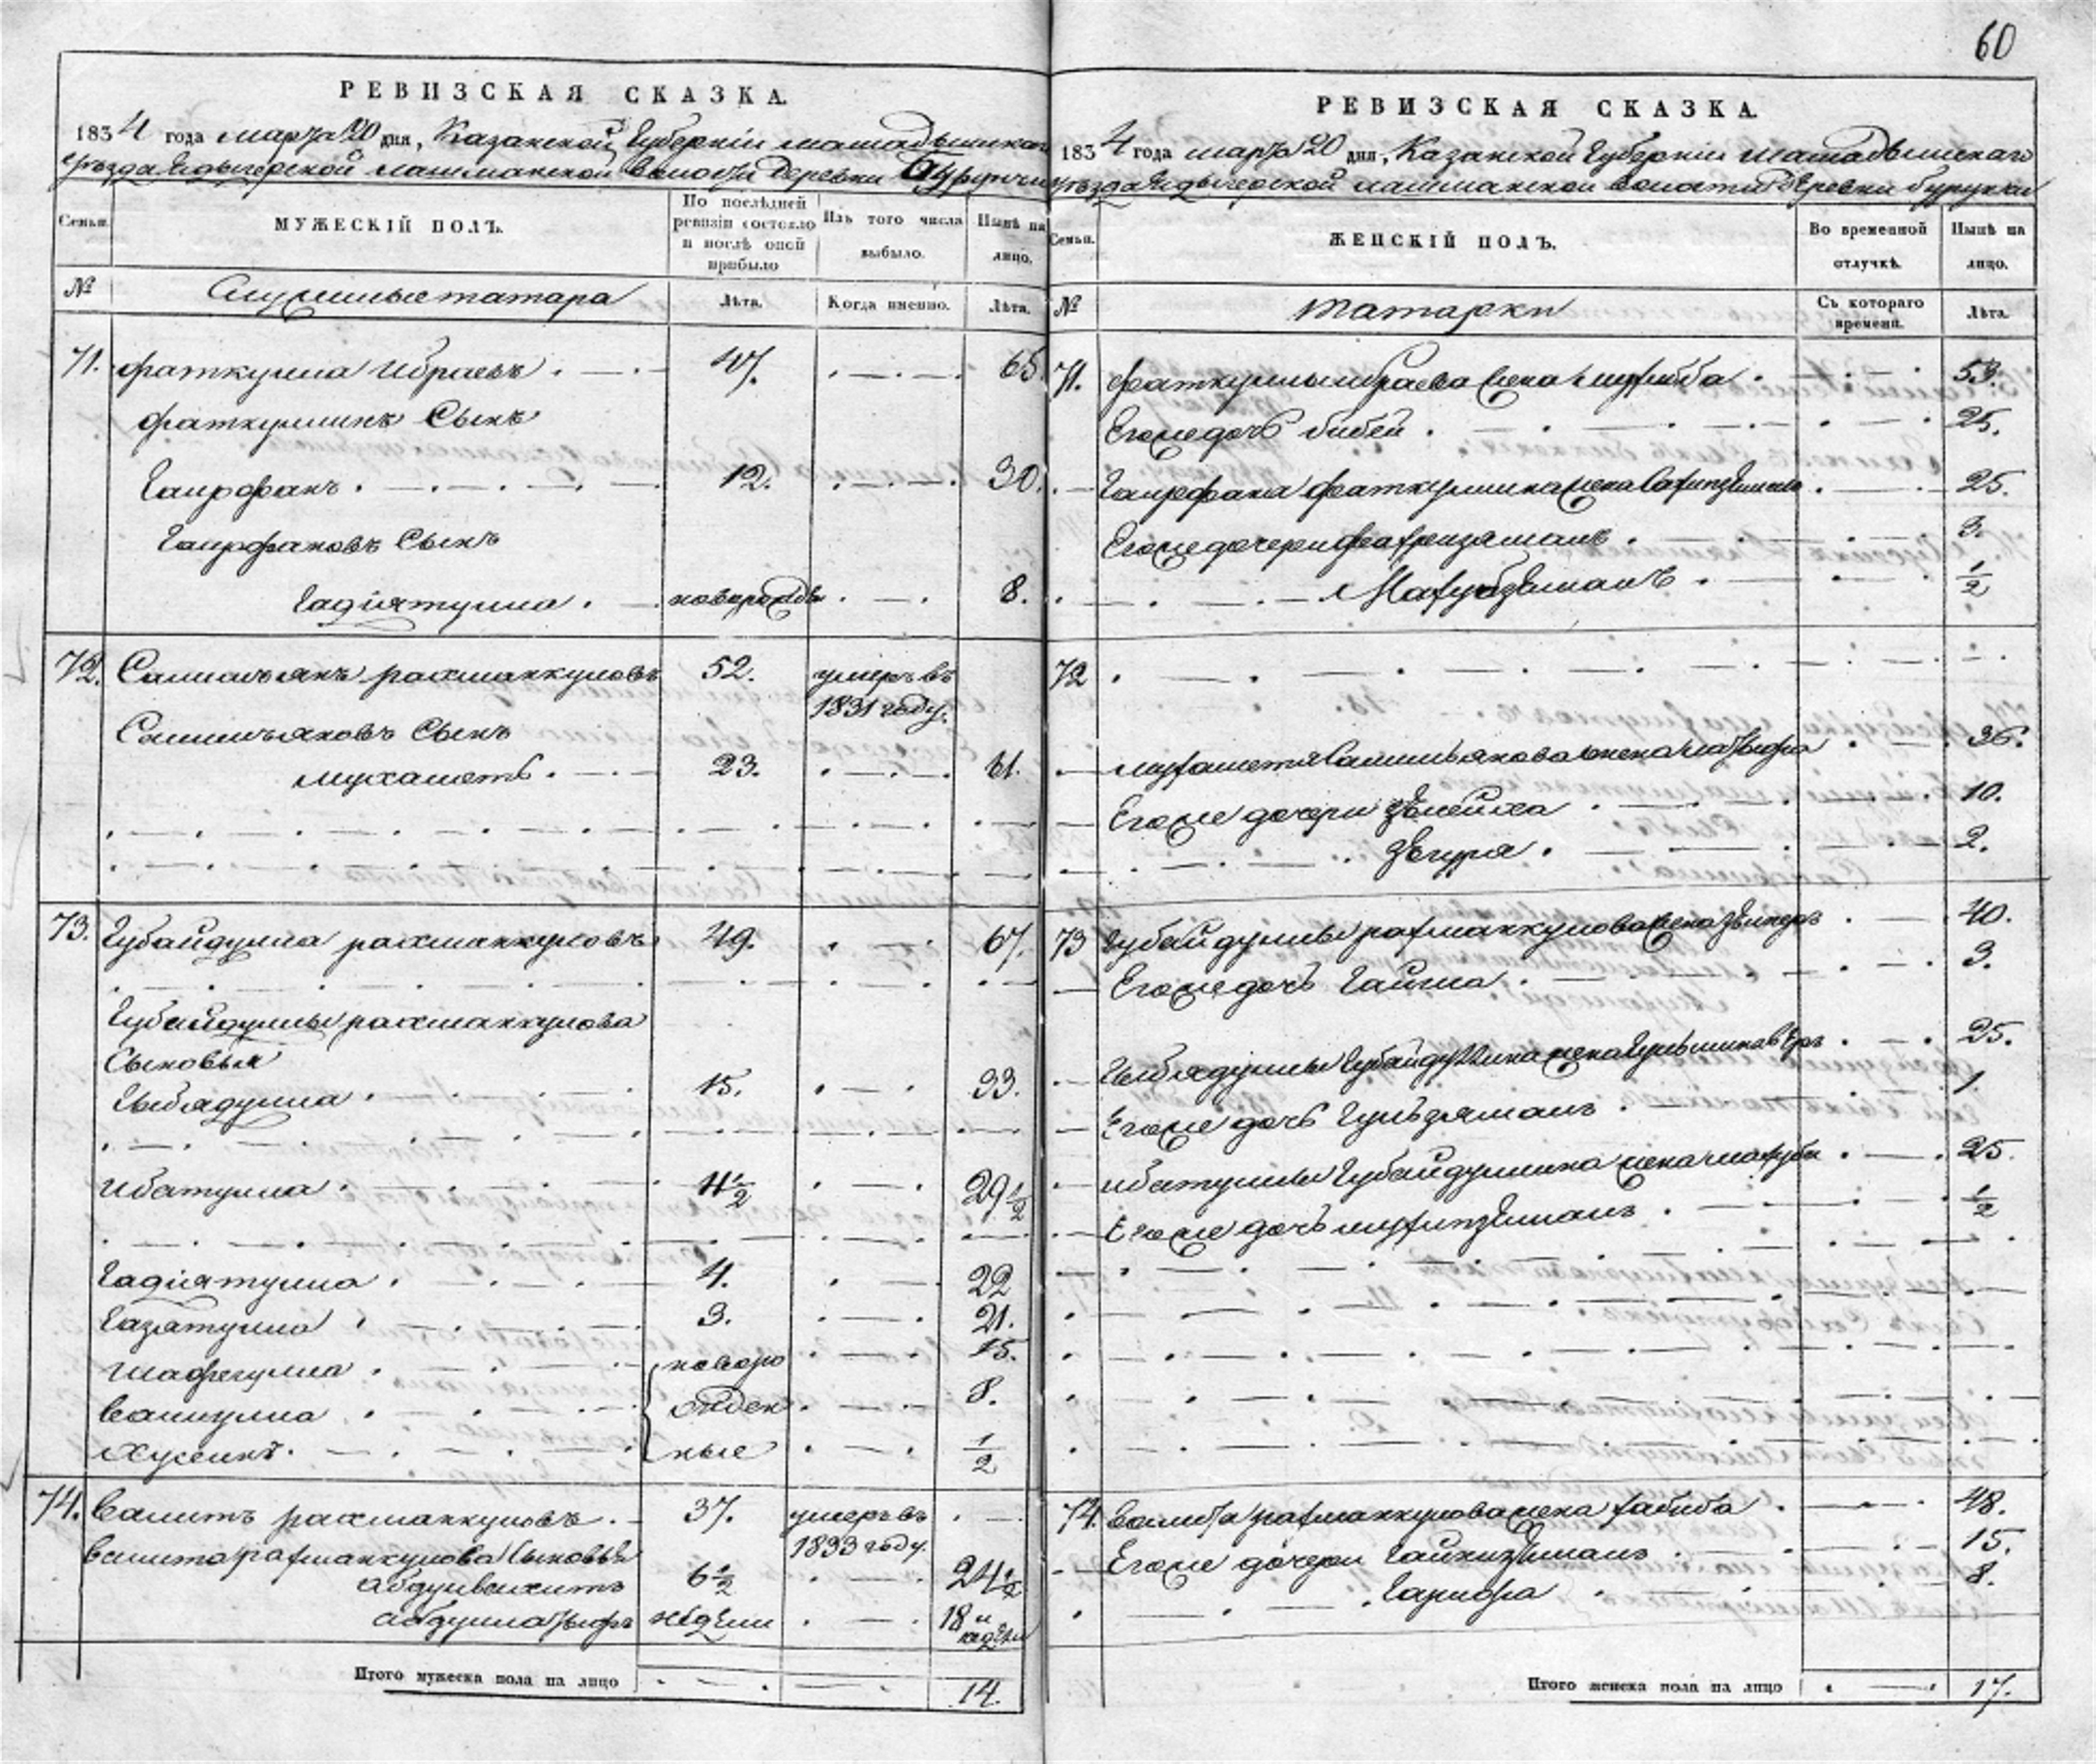 60
РЕВИЗСКАЯ СКАЗКА.
1834 года марта 20 дня, Казанской Губерніи мамадышскаго
уѣзда Ядыгерской лашманской волости деревни Бурунчи
Семьи.
МУЖЕСКІЙ ПОЛЪ.
По послѣдней ревизіи состояло и послѣ оной прибыло
Изъ того числа выбыло.
Нынѣ на лицо.
№
Служилые татара
Лѣта.
Когда именно.
Лѣта.
71. фаткулла ибраевъ 47. 65.
фаткуллинъ Сынъ
Гаирфанъ 12. 30.
Гаирфановъ Сынъ
Гадіятулла новорожде 8.
72. Салимъянъ рахманкуловъ 52. умеръ въ
1831 году.
Салимъяновъ Сынъ
мухаметъ 23. 41.
73. Губайдулла рахманкуловъ 49. 67.
Губайдуллы рахманкулова
Сыновья
Гыбядулла 15. 33.
ибатулла 11 1/2 29 1/2
Гадіятулла 4. 22
Газатулла 3. 21.
Шафегулла новоро 15.
Валиулла жден 8.
Хусеинъ ные 1/2
74. Валитъ рахманкуловъ 37. умеръ въ
1833 году.
Валита рахманкулова Сыновья
абдулвахитъ 6 1/2 24 1/2
абдуллатыфъ недели 18 и недели
Итого мужеска пола на лицо 14.
РЕВИЗСКАЯ СКАЗКА.
1834 года марта 20 дня, Казанской Губерніи мамадышскаго
уѣзда Ядыгерской лашманской волости деревни бурунчи
Семьи.
ЖЕНСКІЙ ПОЛЪ.
Во временной отлучкѣ.
Нынѣ на лицо.
№
татарки
Съ котораго времени.
Лѣта.
71. фаткуллы ибраева жена 53.
Егоже дочь бибей 25.
Гаирфана фаткуллина жена 25.
Егоже дочери 3.
Махубзяманъ 1/2
72
мухаметя Салимьянова жена латыфа 36.
Егоже дочери Зюлейха 10.
Зѣгура 2.
73 Губайдуллы рахманкулова жена 40.
Егоже дочь Гайша 3.
Гыбядуллы Губайдуллина жена 25.
Егоже дочь Гульзяманъ 1.
ибатуллы Губайдуллина жена махуба 25.
Егоже дочь 1/2
74. Валита рахманкулова жена хабиба 48.
Егоже дочери 15.
Гарифа 8.
Итого женска пола на лицо 17.